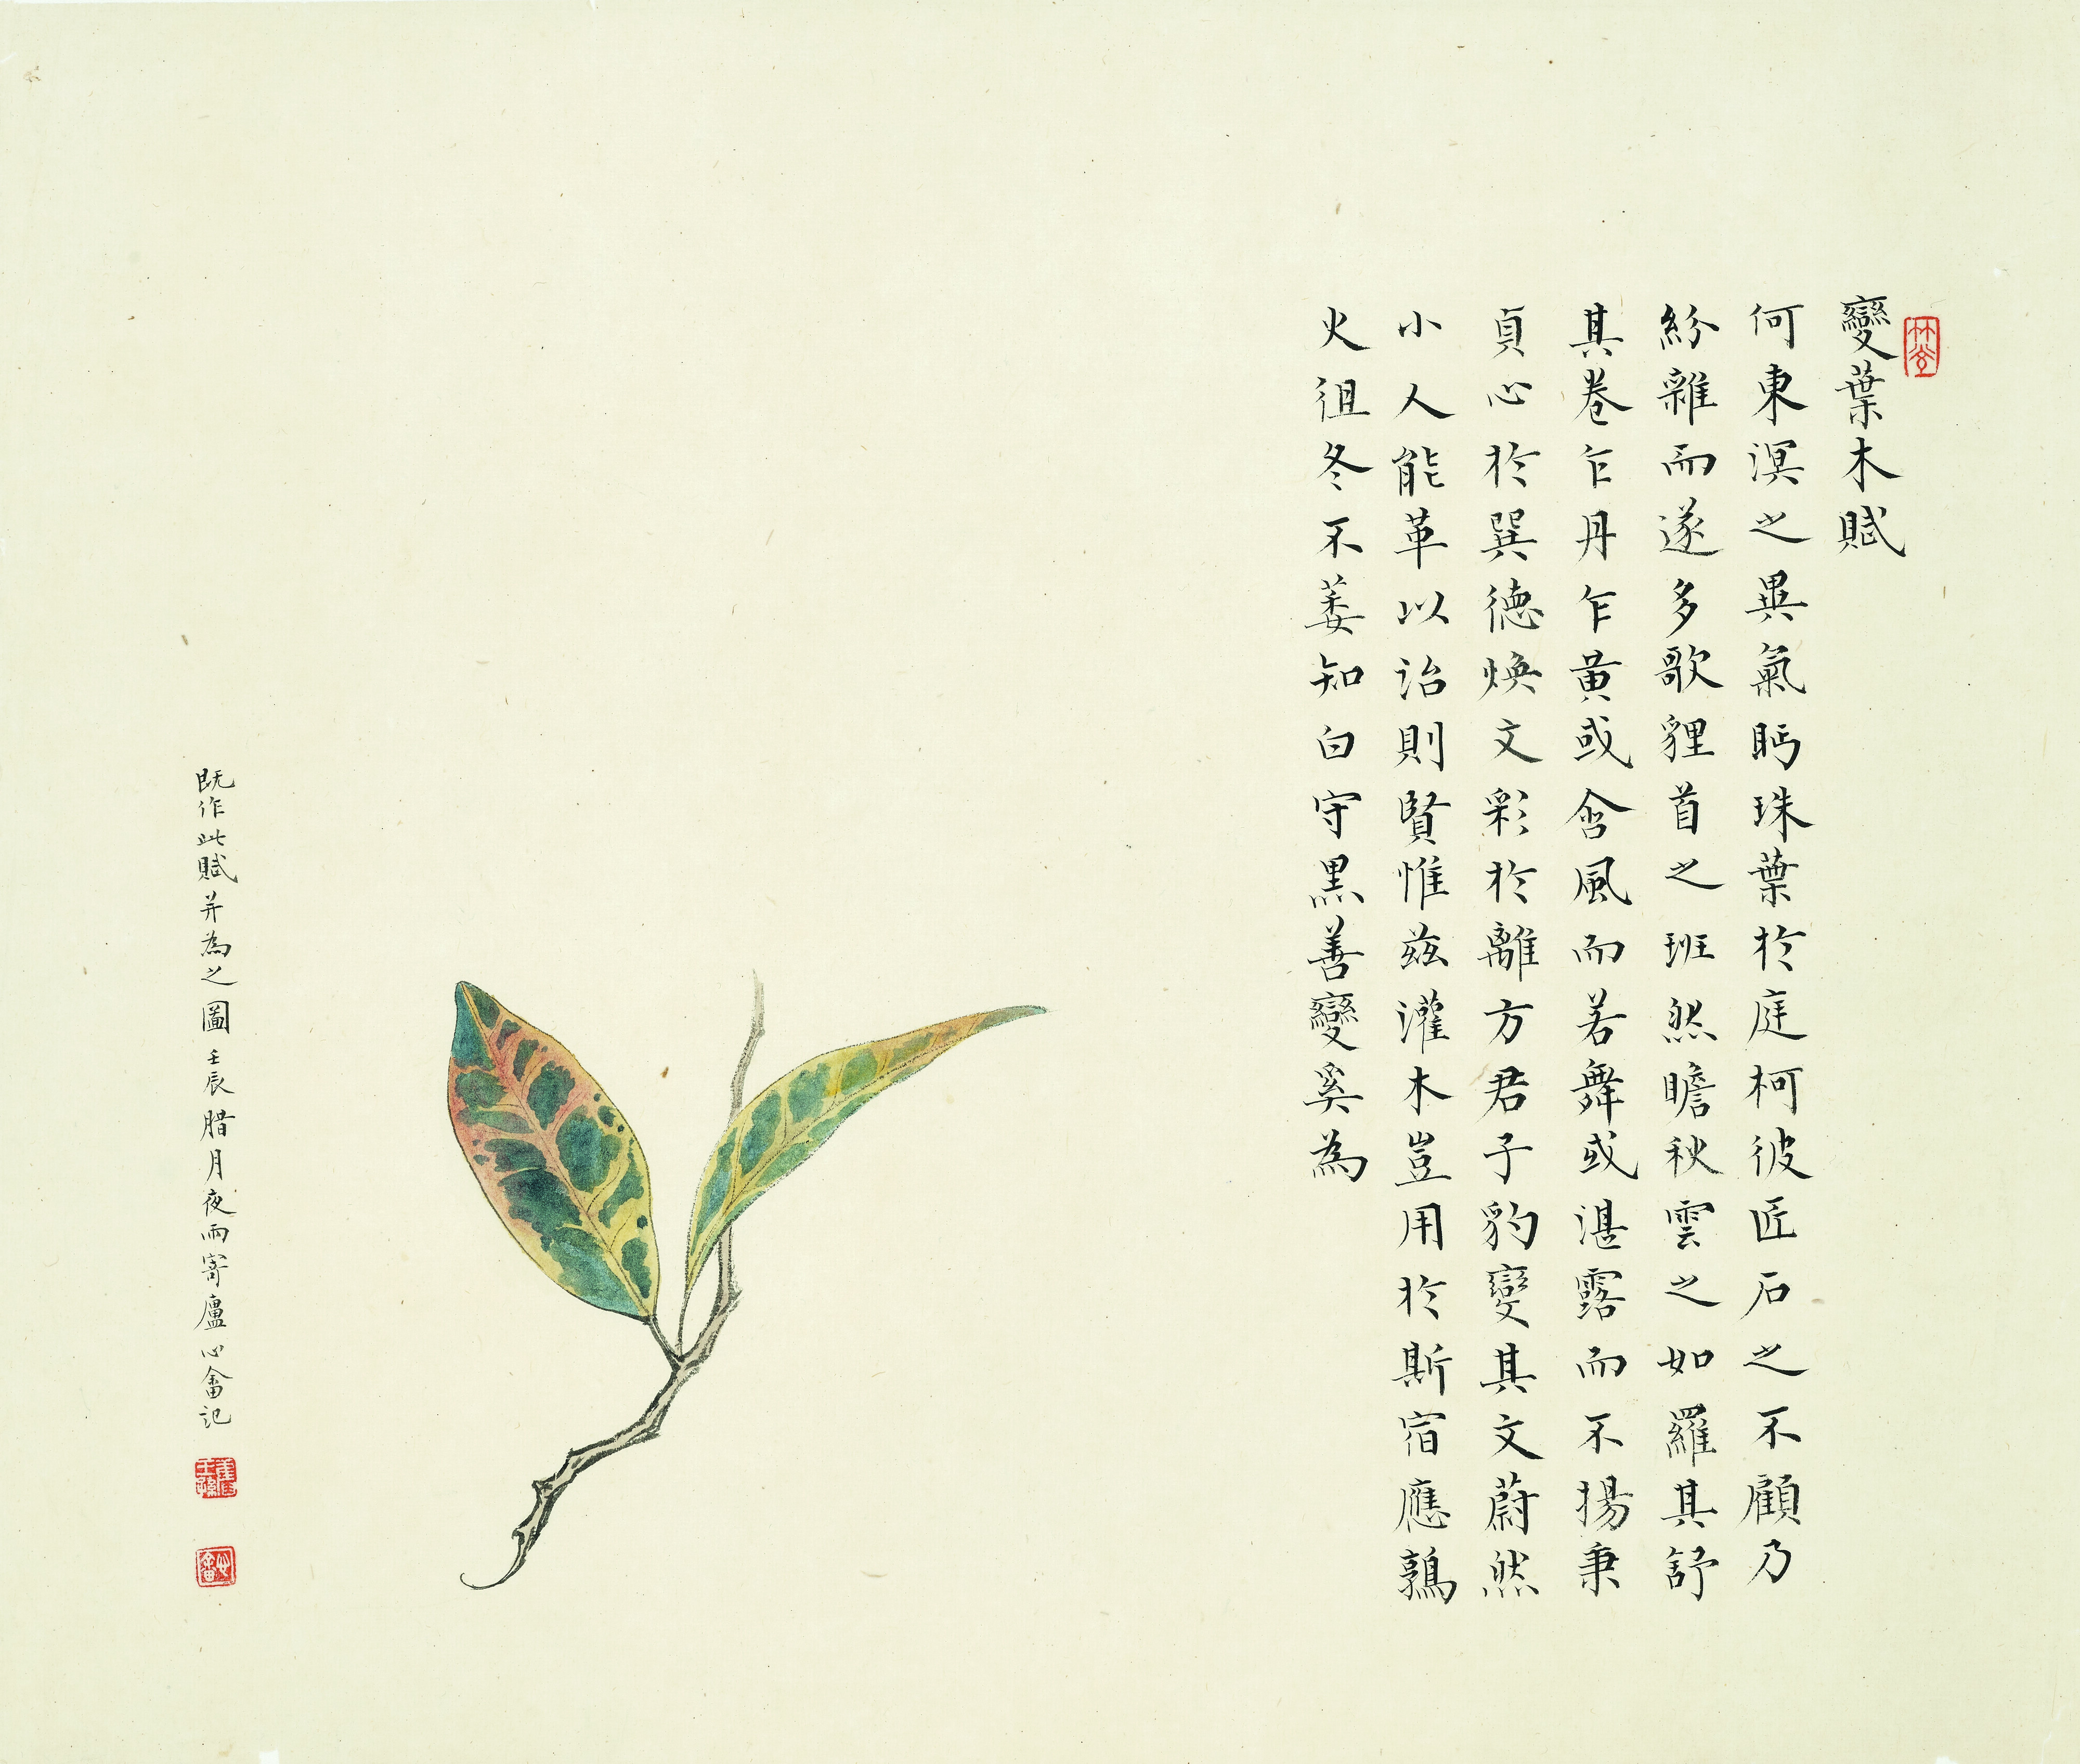 變葉木賦
何東溟之異氣眄珠葉於庭柯彼匠石之不顧乃
紛雜而遂多歌貍首之班然瞻秋雲之如羅其舒
其卷乍丹乍黃或含風而若舞或湛露而不揚秉
貞心於巽德煥文彩於離方君子豹變其文蔚然
小人能革以治則賢惟茲灌木豈用於斯宿應鶉
火徂冬不萎知白守黑善變奚為
既作此賦并為之圖壬辰腊月夜雨寄廬心畬記
舊王孫
心畬